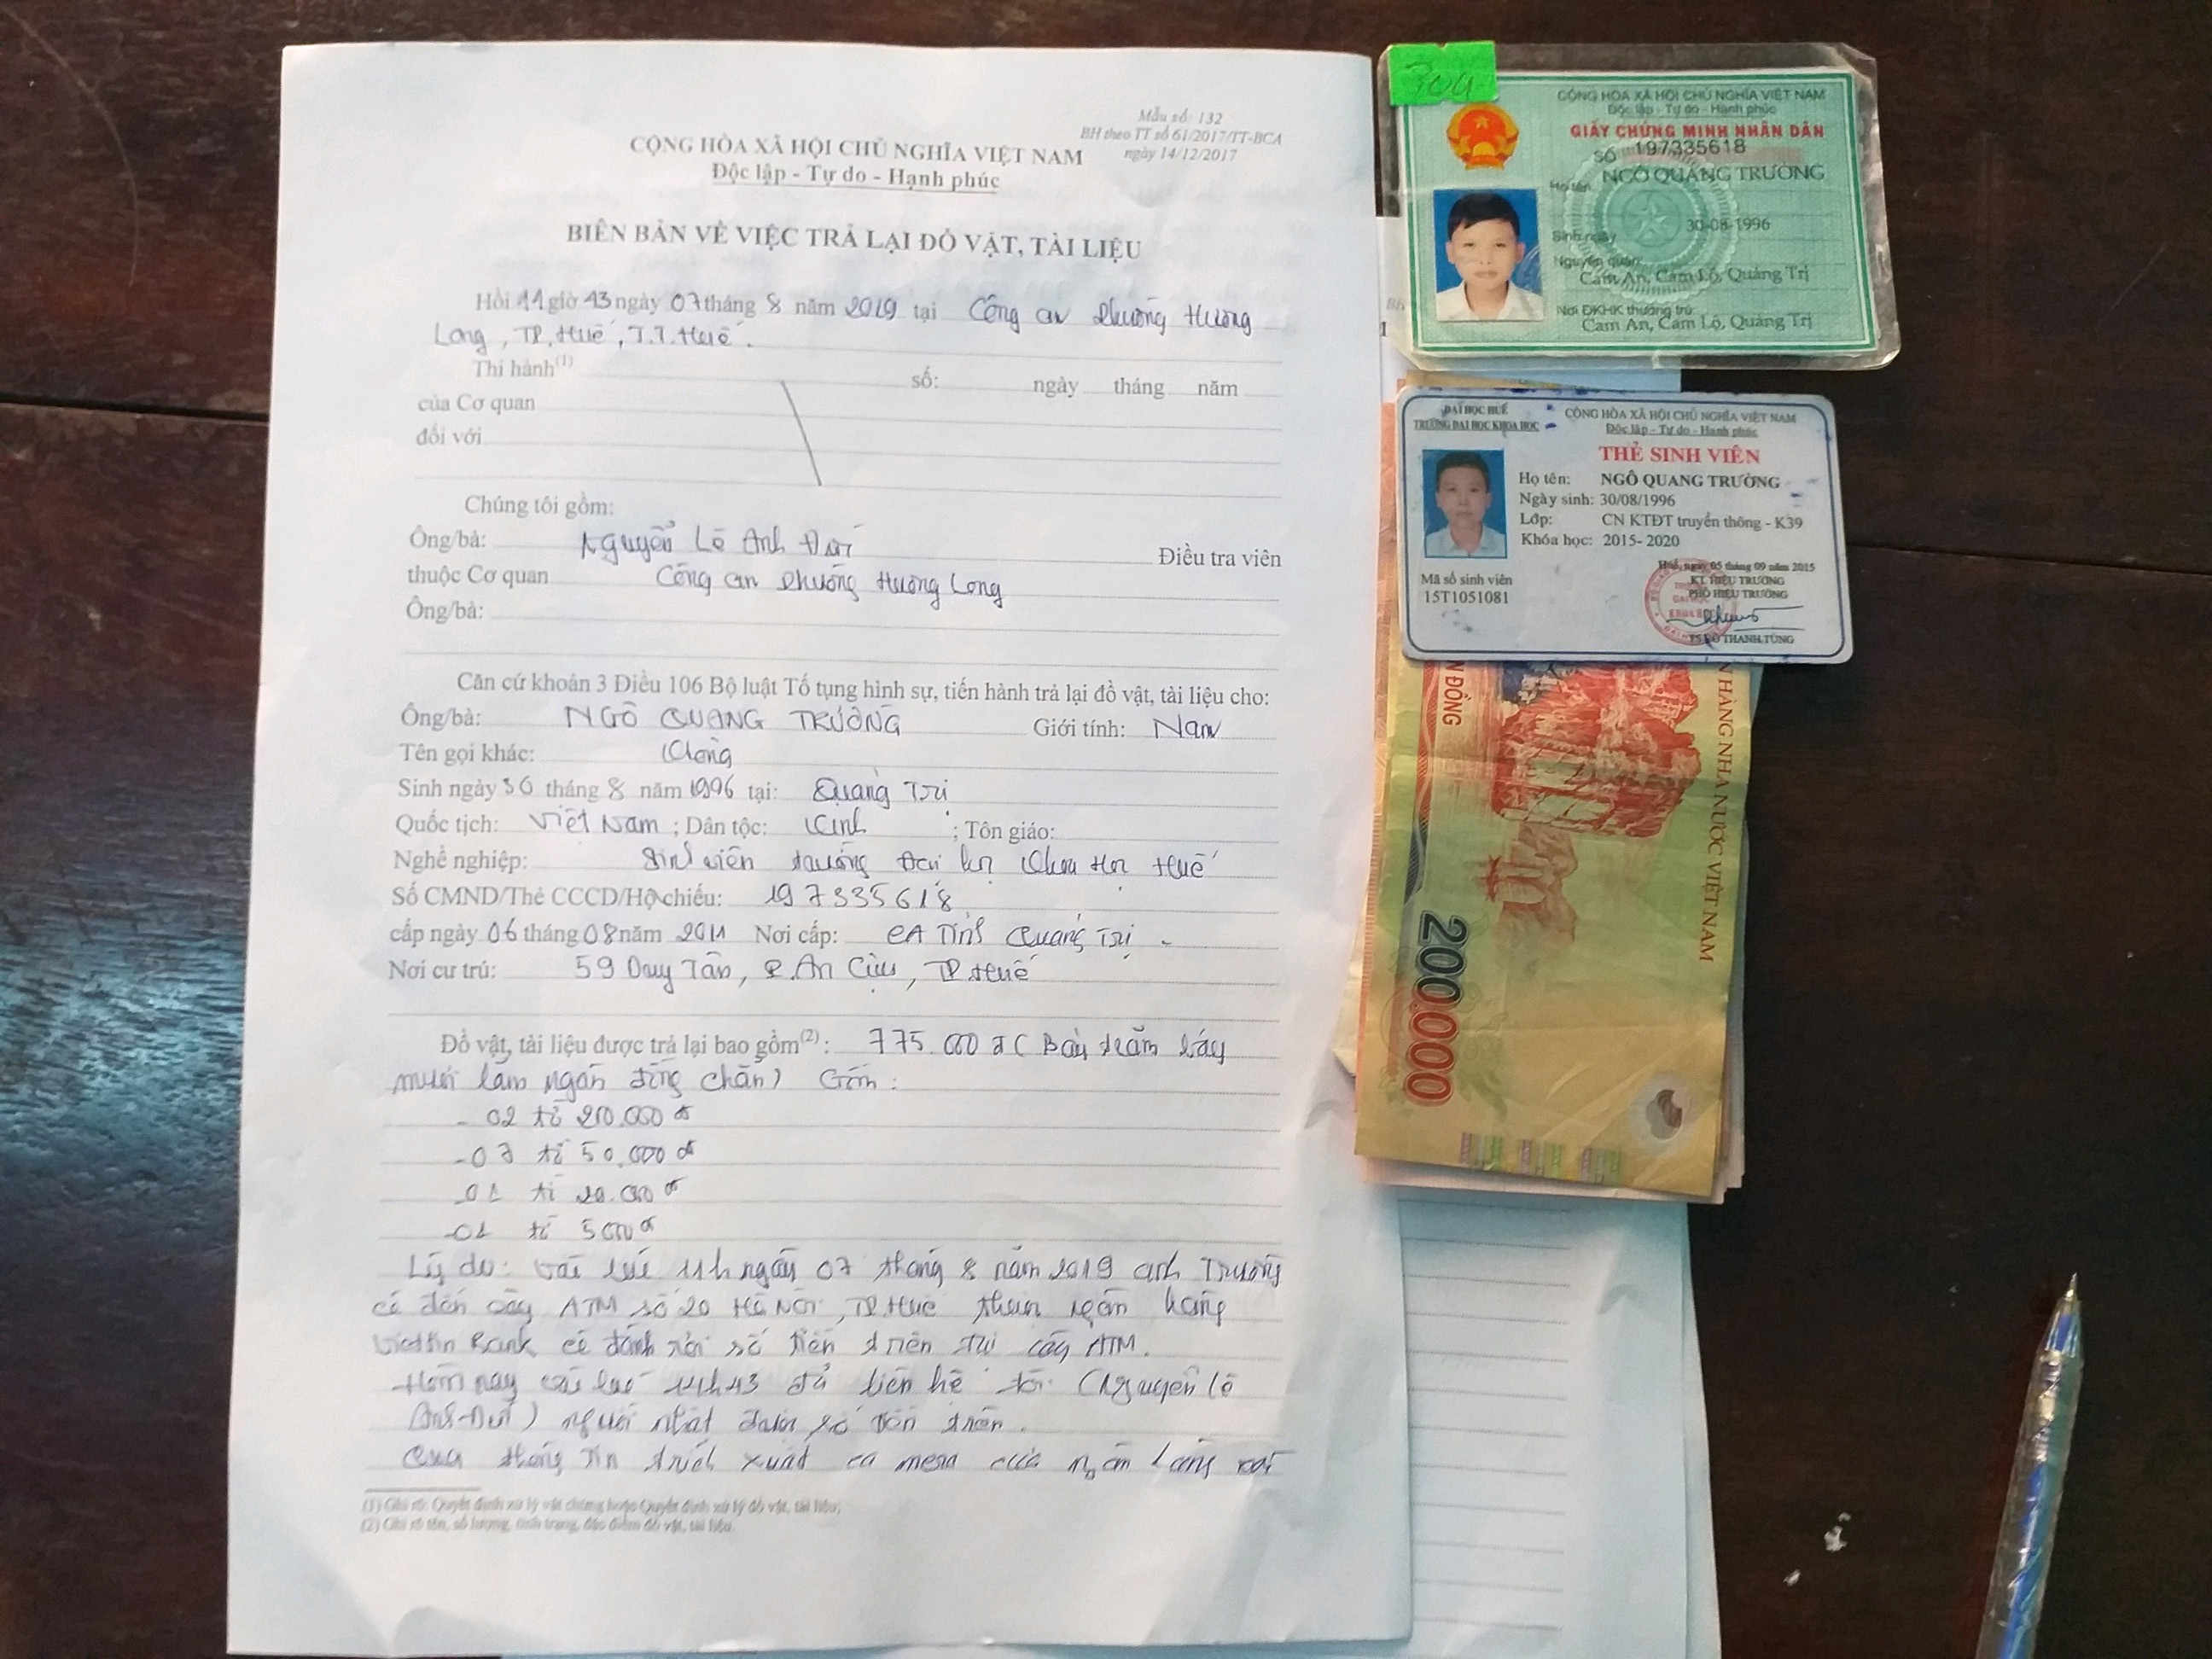 Mẫu số: 132
BH theo TT số 61/2017/TT-BCA
ngày 14/12/2017
CỘNG HÒA XÃ HỘI CHỦ NGHĨA VIỆT NAM
Độc lập - Tự do - Hạnh phúc
BIÊN BẢN VỀ VIỆC TRẢ LẠI ĐỒ VẬT, TÀI LIỆU
Hồi 11 giờ 43 ngày 07 tháng 8 năm 2019 tại Công an Phường Hương
Long, TP. Huế, T.T. Huế.
Thi hành(1) số: ngày tháng năm
của Cơ quan
đối với
Chúng tôi gồm:
Ông/bà: Nguyễn Lê Anh Điều tra viên
thuộc Cơ quan Công an Phường Hương Long
Ông/bà:
Căn cứ khoản 3 Điều 106 Bộ luật Tố tụng hình sự, tiến hành trả lại đồ vật, tài liệu cho:
Ông/bà: NGÔ QUANG TRƯỜNG Giới tính: Nam
Tên gọi khác: Không
Sinh ngày 30 tháng 8 năm 1996 tại: Quảng Trị
Quốc tịch: Việt Nam ; Dân tộc: Kinh ; Tôn giáo:
Nghề nghiệp: Sinh viên trường Đại học Khoa Học Huế
Số CMND/Thẻ CCCD/Hộ chiếu: 197335618
cấp ngày 06 tháng 08 năm 2011 Nơi cấp: CA Tỉnh Quảng Trị.
Nơi cư trú: 59 Duy Tân, P. An Cựu, TP Huế
Đồ vật, tài liệu được trả lại bao gồm(2): 775.000 đ (Bảy trăm bảy
mươi lăm ngàn đồng chẵn) Gồm:
- 02 tờ 200.000 đ
- 07 tờ 50.000 đ
- 01 tờ 20.000 đ
- 01 tờ 5000 đ
Lý do: vào lúc 11h ngày 07 tháng 8 năm 2019 anh Trường
có đến cây ATM số 20 Hà Nội, TP. Huế thuộc ngân hàng
Viettin Bank có đánh rơi số tiền trên tại cây ATM.
Hôm nay vào lúc 11h43 đã liên hệ tôi (Nguyễn Lê
Anh ) người nhặt được số tiền trên.
Qua thông tin trích xuất ca mera của ngân hàng
(1) Ghi rõ: Quyết định xử lý vật chứng hoặc Quyết định xử lý đồ vật, tài liệu;
(2) Ghi rõ tên, số lượng, tình trạng, đặc điểm đồ vật, tài liệu.
304
CỘNG HÒA XÃ HỘI CHỦ NGHĨA VIỆT NAM
Độc lập - Tự do - Hạnh phúc
GIẤY CHỨNG MINH NHÂN DÂN
SỐ 197335618
Họ tên NGÔ QUANG TRƯỜNG
Sinh ngày 30-08-1996
Nguyên quán: Cam An, Cam Lộ, Quảng Trị
Nơi ĐKHK thường trú:
Cam An, Cam Lộ, Quảng Trị
ĐẠI HỌC HUẾ
TRƯỜNG ĐẠI HỌC KHOA HỌC
CỘNG HÒA XÃ HỘI CHỦ NGHĨA VIỆT NAM
Độc lập - Tự do - Hạnh phúc
THẺ SINH VIÊN
Họ tên: NGÔ QUANG TRƯỜNG
Ngày sinh: 30/08/1996
Lớp: CN KTĐT truyền thông - K39
Khóa học: 2015- 2020
Mã số sinh viên
15T1051081
Huế, ngày 05 tháng 09 năm 2015
KT. HIỆU TRƯỞNG
PHÓ HIỆU TRƯỞNG
TS ĐỖ THANH TÙNG
N ĐỒNG
N HÀNG NHÀ NƯỚC VIỆT NAM
200.000